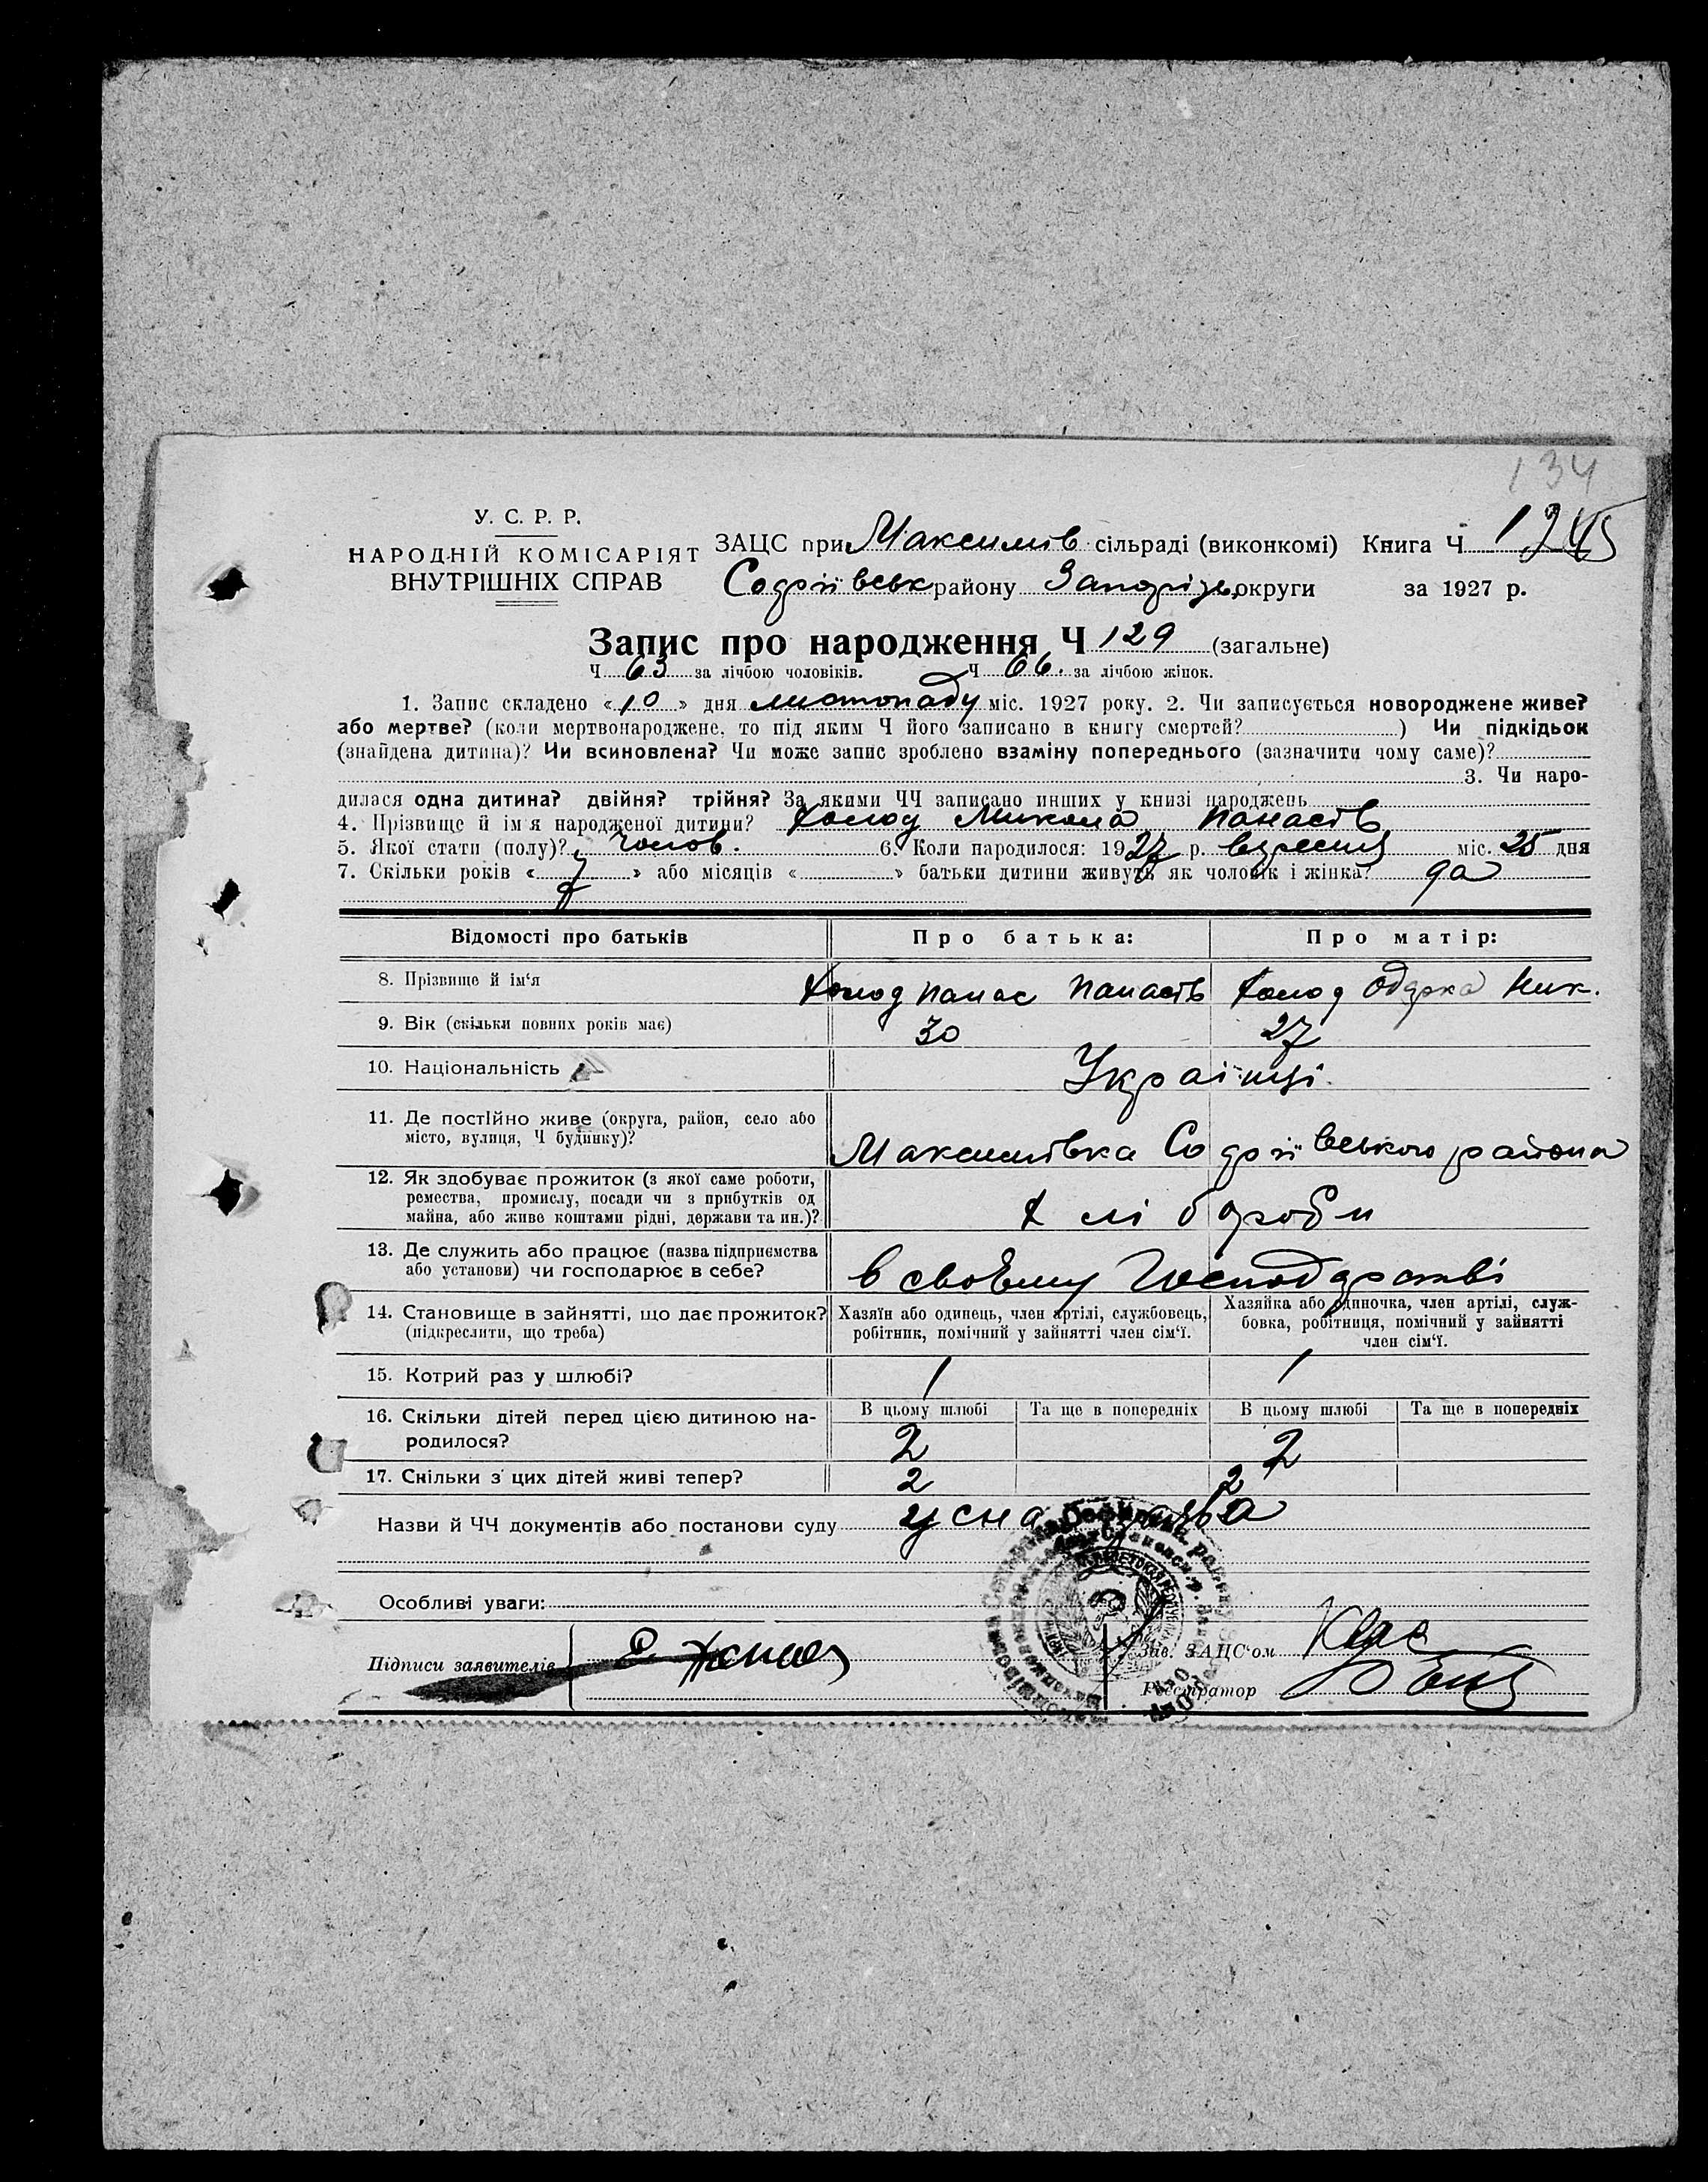 134
У. С. Р. Р.
НАРОДНІЙ КОМІСАРІЯТ
ВНУТРІШНІХ СПРАВ
ЗАЦС при Максимів сільраді (виконкомі) Книга Ч
району Запоріз округи за 1927 р.
Запис про народження Ч 129 (загальне)
Ч 63 за лічбою чоловіків. Ч 66. за лічбою жінок.
1. Запис складено «10» дня листопаду міс. 1927 року. 2. Чи записується новороджене живе?
або мертве? (коли мертвонароджене, то під яким Ч його записано в книгу смертей? ) Чи підкідьок
(знайдена дитина)? Чи всиновлена? Чи може запис зроблено взаміну попереднього (зазначити чому саме)?
3. Чи наро-
дилася одна дитина? двійня? трійня? За якими ЧЧ записано инших у книзі народжень
4. Прізвище й ім'я народженої дитини? Холод Микола Панасів
5. Якої стати (полу)? Чолов. 6. Коли народилося: 1927 р. вересня міс. 25 дня
7. Скільки років « 7 » або місяців « » батьки дитини живуть як чоловік і жінка? да
Відомості про батьків Про батька: Про матір:
8. Прізвище й ім'я Холод Панас Панасів Холод Одарка Ник.
9. Вік (скільки повних років має) 30 27
10. Національність Українці.
11. Де постійно живе (округа, район, село або
місто, вулиця, Ч будинку)? Максимівка района
12. Як здобуває прожиток (з якої саме роботи,
ремества, промислу, посади чи з прибутків од
майна, або живе коштами рідні, держави та ин.)? Хліборобы
13. Де служить або працює (назва підприємства
або установи) чи господарює в себе? в своему Господарстві
14. Становище в зайнятті, що дає прожиток?
(підкреслити, що треба)
Хазяїн або одинець, член артілі, службовець,
робітник, помічний у зайнятті член сім'ї.
Хазяйка або одиночка, член артілі, служ-
бовка, робітниця, помічний у зайнятті
член сім'ї.
15. Котрий раз у шлюбі? 1 1
16. Скільки дітей перед цією дитиною на-
родилося?
В цьому шлюбі Та ще в попередніх В цьому шлюбі Та ще в попередніх
2 2
17. Скільки з цих дітей живі тепер? 2 2
Назви й ЧЧ документів або постанови суду усна заява
Особливі уваги:
Підписи заявителів
Зав. ЗАЦС'ом
Реєстратор